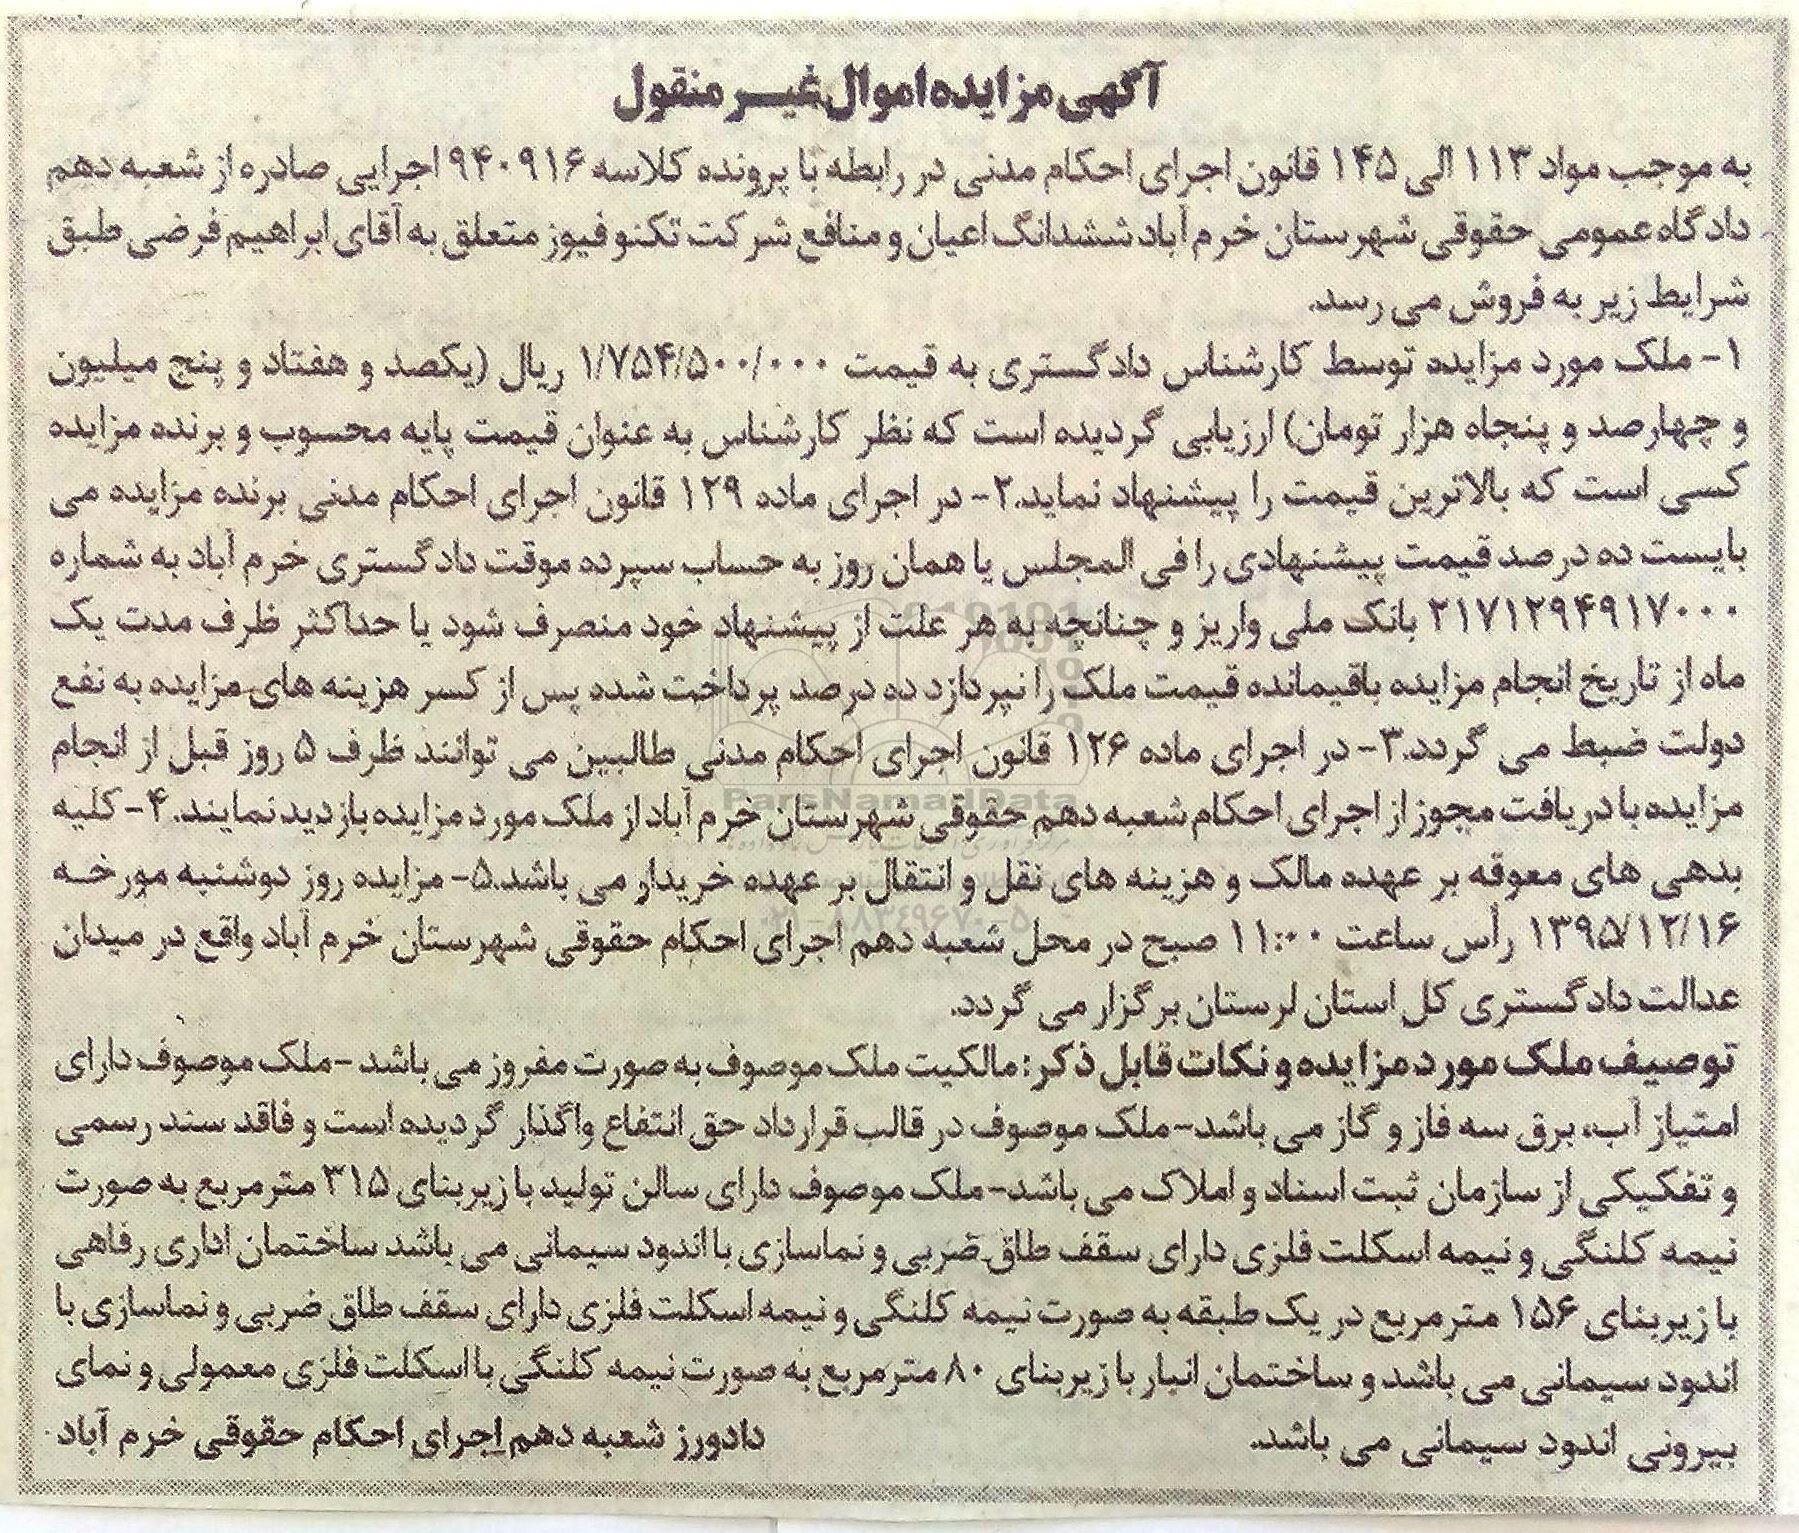 آگهی مزایده اموال غیر منقول
به موجب مواد ۱۱۳ الی ۱۴۵ قانون اجرای احکام مدنی در رابطه با پرونده کلاسه ۹۴۰۹۱۶ اجرایی صادره از شعبه دهم
دادگاه عمومی حقوقی شهرستان خرم آباد ششدانگ اعیان و منافع شرکت تکنو فیوز متعلق به آقای ابراهیم فرضی طبق
شرایط زیر به فروش می رسد.
۱- ملک مورد مزایده توسط کارشناس دادگستری به قیمت ۱/۷۵۴/۵۰۰/۰۰۰ ریال (یکصد و هفتاد و پنج میلیون
و چهارصد و پنجاه هزار تومان) ارزیابی گردیده است که نظر کارشناس به عنوان قیمت پایه محسوب و برنده مزایده
کسی است که بالاترین قیمت را پیشنهاد نماید.۲- در اجرای ماده ۱۲۹ قانون اجرای احکام مدنی برنده مزایده می
بایست ده درصد قیمت پیشنهادی را فی المجلس یا همان روز به حساب سپرده موقت دادگستری خرم آباد به شماره
۲۱۷۱۲۹۴۹۱۷۰۰۰ بانک ملی واریز و چنانچه به هر علت از پیشنهاد خود منصرف شود یا حداکثر ظرف مدت یک
ماه از تاریخ انجام مزایده باقیمانده قیمت ملک را نپردازد ده درصد پرداخت شده پس از کسر هزینه های مزایده به نفع
دولت ضبط می گردد.۳- در اجرای ماده ۱۲۶ قانون اجرای احکام مدنی طالبین می توانند ظرف ۵ روز قبل از انجام
مزایده با دریافت مجوز از اجرای احکام شعبه دهم حقوقی شهرستان خرم آباد از ملک مورد مزایده بازدید نمایند. ۴- کلیه
بدهی های معوقه بر عهده مالک و هزینه های نقل و انتقال بر عهده خریدار می باشد.۵- مزایده روز دوشنبه مورخه
۱۳۹۵/۱۲/۱۶ رأس ساعت ۱۱:۰۰ صبح در محل شعبه دهم اجرای احکام حقوقی شهرستان خرم آباد واقع در میدان
عدالت دادگستری کل استان لرستان برگزار می گردد.
توصیف ملک مورد مزایده و نکات قابل ذکر: مالکیت ملک موصوف به صورت مفروز می باشد -ملک موصوف دارای
امتیاز آب، برق سه فاز و گاز می باشد-ملک موصوف در قالب قرارداد حق انتفاع واگذار گردیده است و فاقد سند رسمی
و تفکیکی از سازمان ثبت اسناد و املاک می باشد-ملک موصوف دارای سالن تولید با زیربنای ۳۱۵ مترمربع به صورت
نیمه کلنگی و نیمه اسکلت فلزی دارای سقف طاق ضربی و نماسازی با اندود سیمانی می باشد ساختمان اداری رفاهی
با زیربنای ۱۵۶ مترمربع در یک طبقه به صورت نیمه کلنگی و نیمه اسکلت فلزی دارای سقف طاق ضربی و نماسازی با
اندود سیمانی می باشد و ساختمان انبار با زیربنای ۸۰ مترمربع به صورت نیمه کلنگی با اسکلت فلزی معمولی و نمای
بیرونی اندود سیمانی می باشد.
دادورز شعبه دهم اجرای احکام حقوقی خرم آباد
ParsNamadData
۰۲۱-۸۸۳۴۹۶۷۰-۵